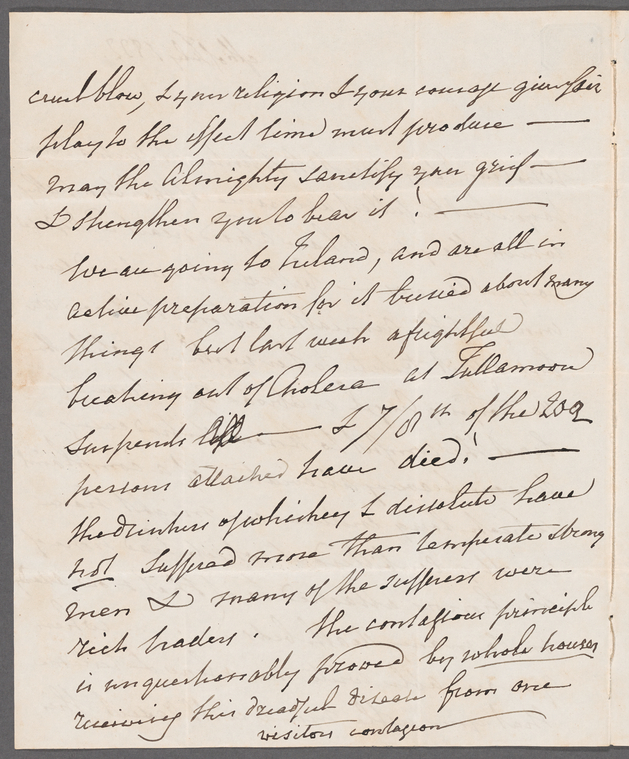 cruel blow, & your religion & your courage give fair
play to the effect time must produce —
may the Almighty sanctify your grief —
& strengthen you to bear it ! —
We are going to Ireland, and are all in
active preparation for it busied about many
things but last week a frightful
breaking out of Cholera at Tullamoore
suspends — & 7/8th of the 202
persons attacked have died! —
the drinkers of whiskey & dissolute have
not suffered more than temperate strong
men & many of the sufferers were
rich traders . The contagious principle
is unquestionably proved by whole houses
receiving this dreadful disease from one
visitors contagion